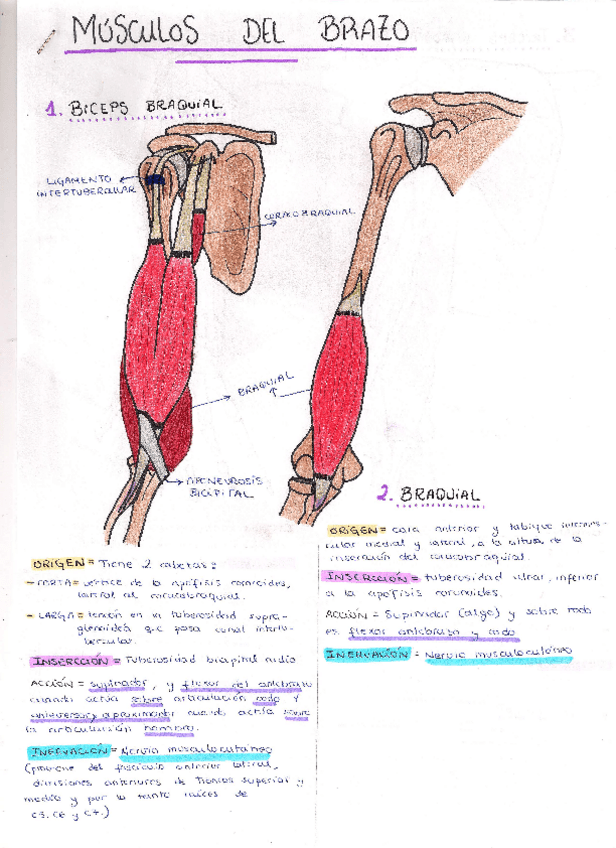 MÚSCULOS DEL BRAZO
1. BÍCEPS BRAQUIAL
LIGAMENTO
INTERTUBERCULAR
CORACOBRAQUIAL
BRAQUIAL
APONEUROSIS
BICIPITAL
2. BRAQUIAL
ORIGEN = Tiene 2 cabezas:
- CORTA = vértice de la apófisis coracoides,
lateral al coracobraquial.
- LARGA = tensión en la tuberosidad supra-
glenoidea que pasa canal intertu-
bercular.
INSERCCIÓN = Tuberosidad bicipital radio
ACCIÓN = supinador, y flexor del antebrazo
cuando actúa sobre articulación codo y
anteversor y aproximador cuando actúa sobre
la articulación hombro.
INERVACIÓN = Nervio musculocutáneo
(proviene del fascículo anterior lateral,
divisiones anteriores de troncos superior y
medio y por lo tanto raíces de
C5, C6 y C7.)
ORIGEN = cara anterior y tabique intermus-
cular medial y lateral, a la altura de la
inserción del coracobraquial.
INSERCCIÓN = tuberosidad ulnar, inferior
a la apófisis coronoides.
ACCIÓN = Supinador (algo) y sobre todo
es flexor antebrazo y codo
INERVACIÓN = Nervio musculocutáneo